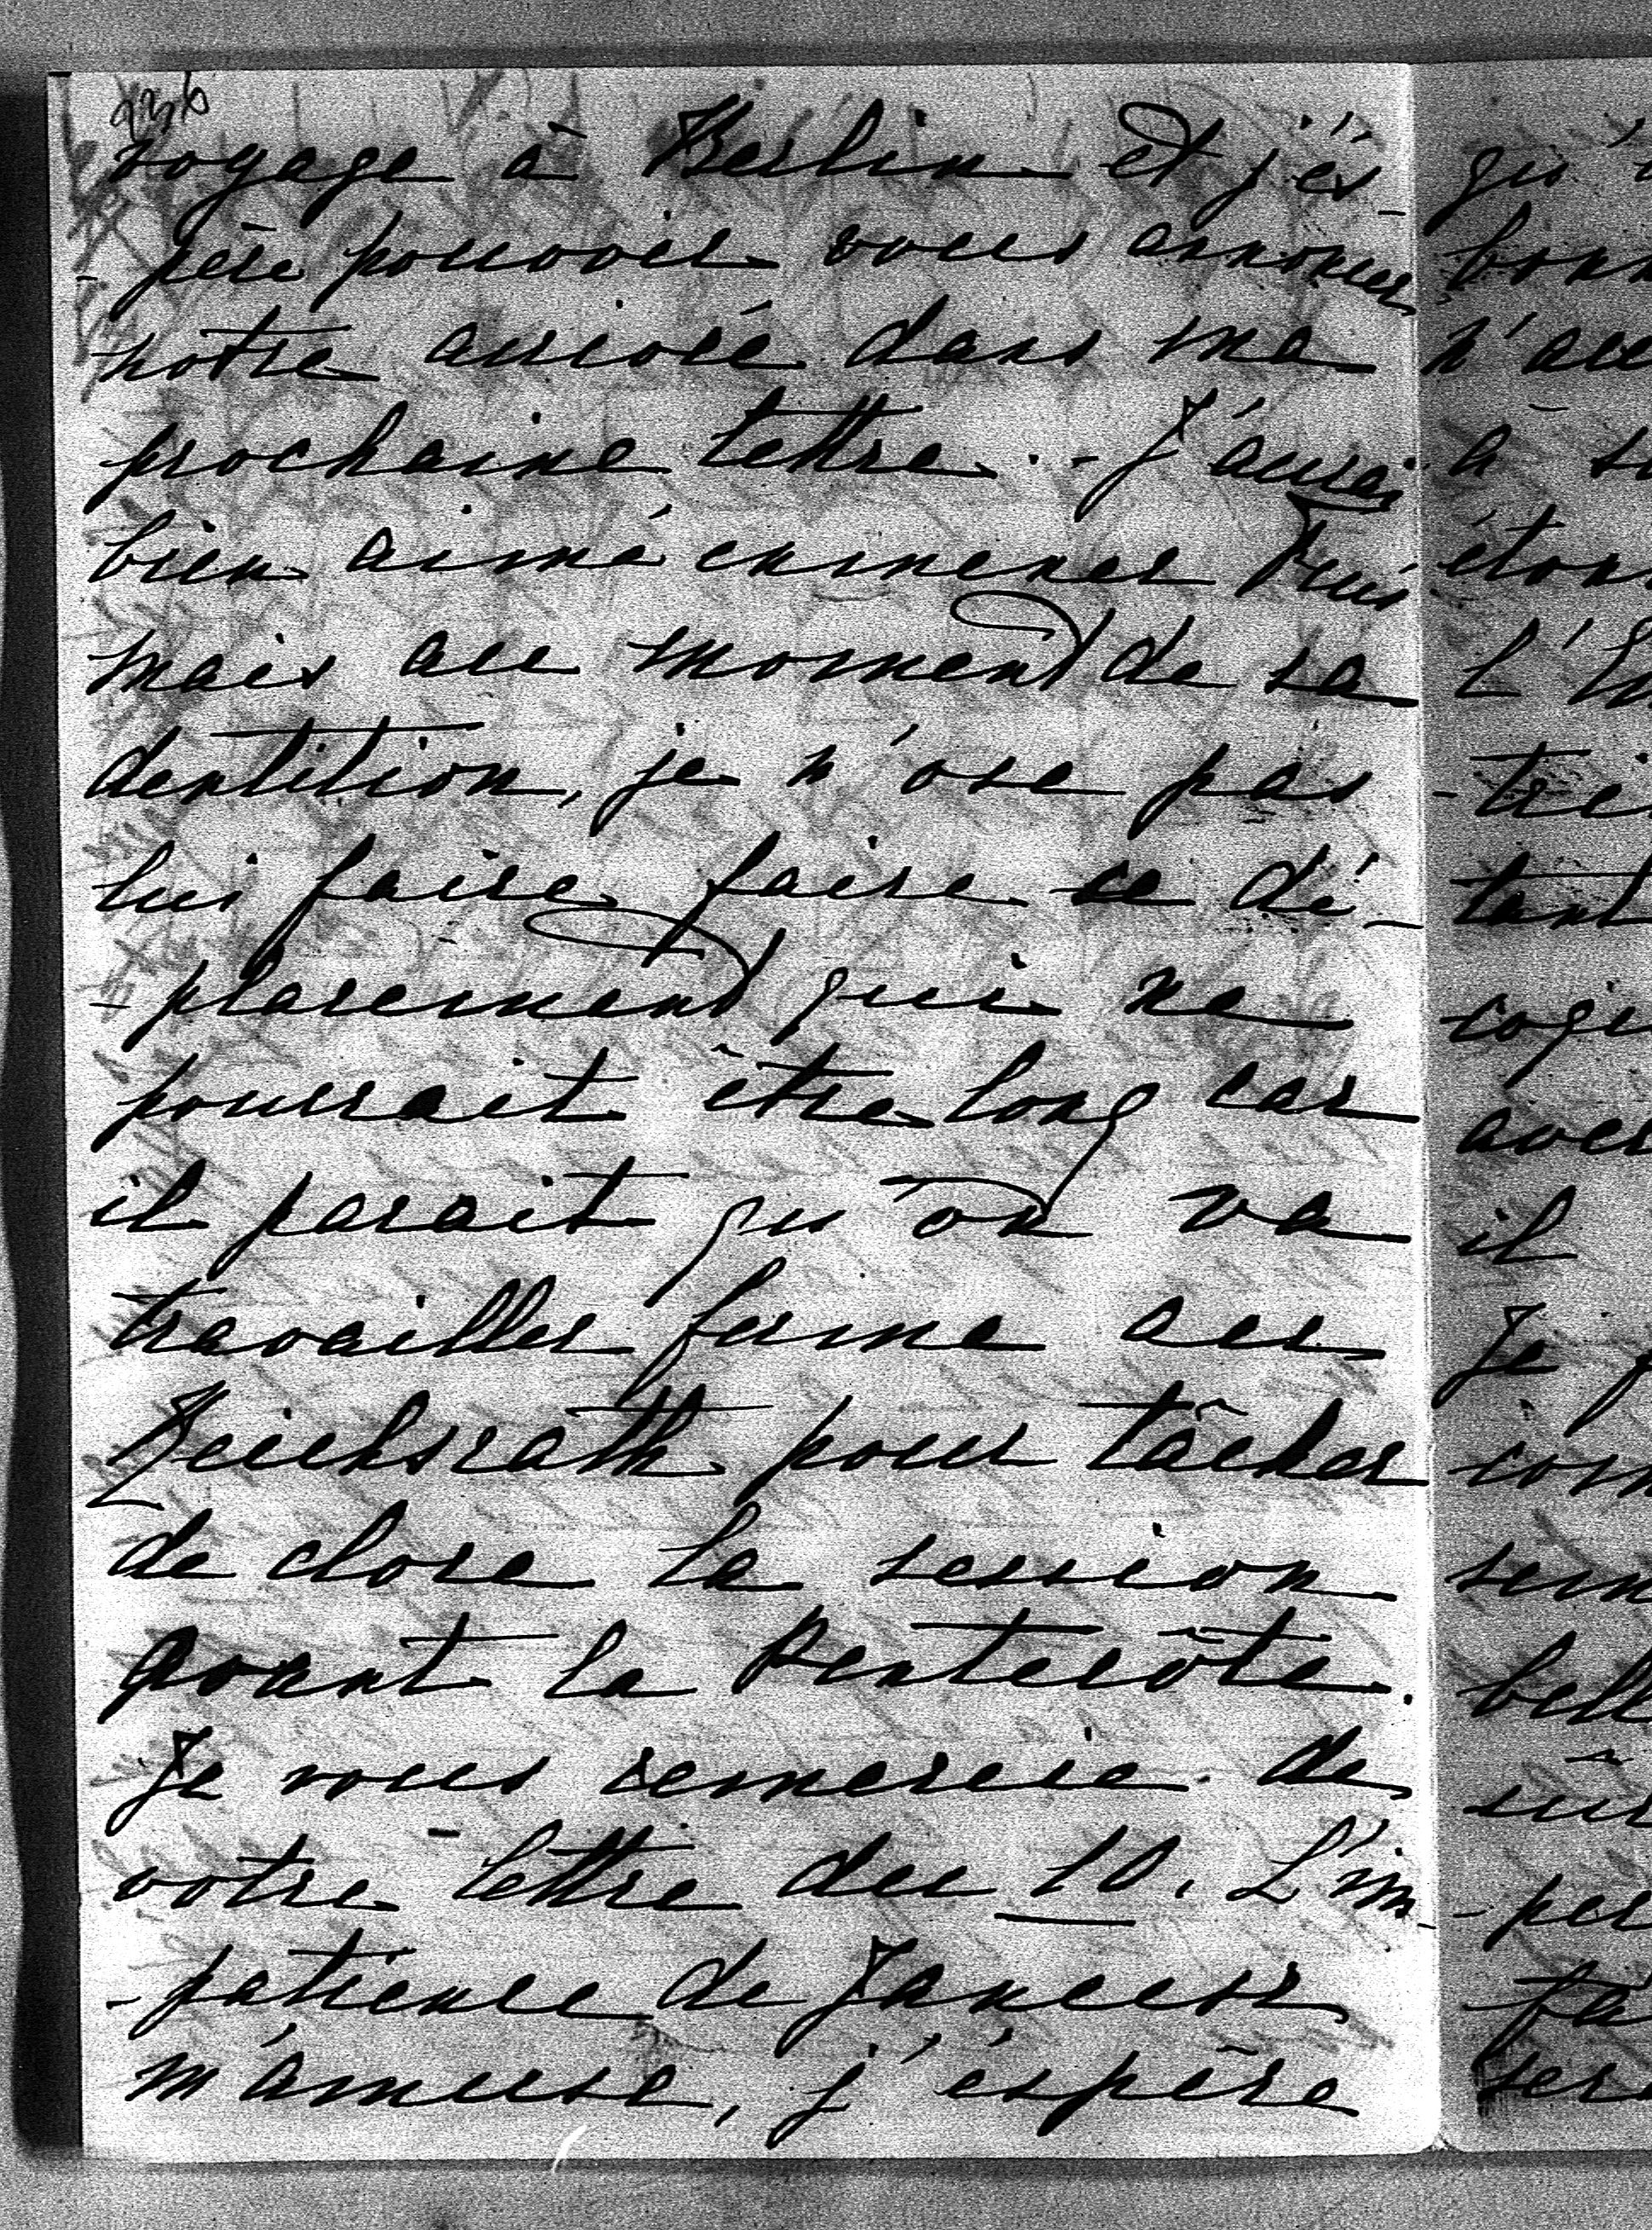 236
voyage à Berlin et j'és-
-père pouvoir vous annoncer
notre arrivée dans ma
prochaine lettre. - J'aurais
bien aimé emmener
mais au moment de sa
dentition, je n'ose pas
lui faire faire ce dé-
-placement qui ne
pourrait être long car
il parait qu'on va
travailler ferme au
Reichsrath pour tâcher
de clore la session
avant la Pentecôte.
Je vous remercie de
votre lettre du 10. L'im-
-patience de
m'amuse, j'éspère
qu'
bonn
n'au
à
éton
L'
-tre
tant
avec
il
Je
sem
belle
sur
-per
fa
sera